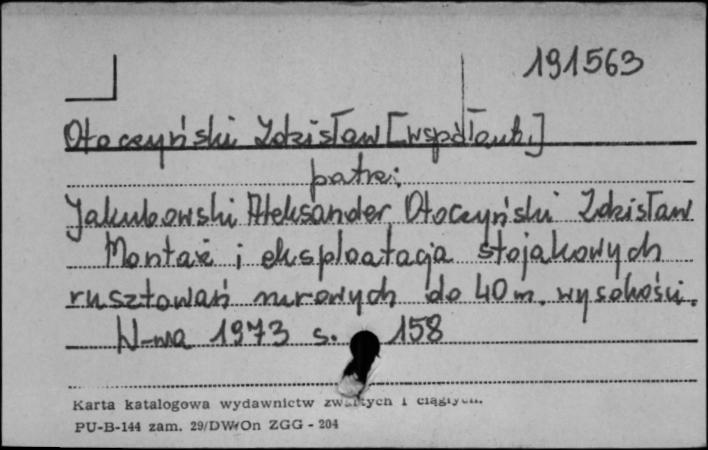 191563
Otoczyński Zdzisław [współaut.]
patrz:
Jakubowski Aleksander Otoczyński Zdzisław
Montaż i eksploatacja stojakowych
rusztowań rurowych do 40 m. wysokości.
W-wa 1973 s. 158
Karta katalogowa wydawnictw zwartych i ciągłych.
PU-B-144 zam. 29/DWrOn ZGG - 204